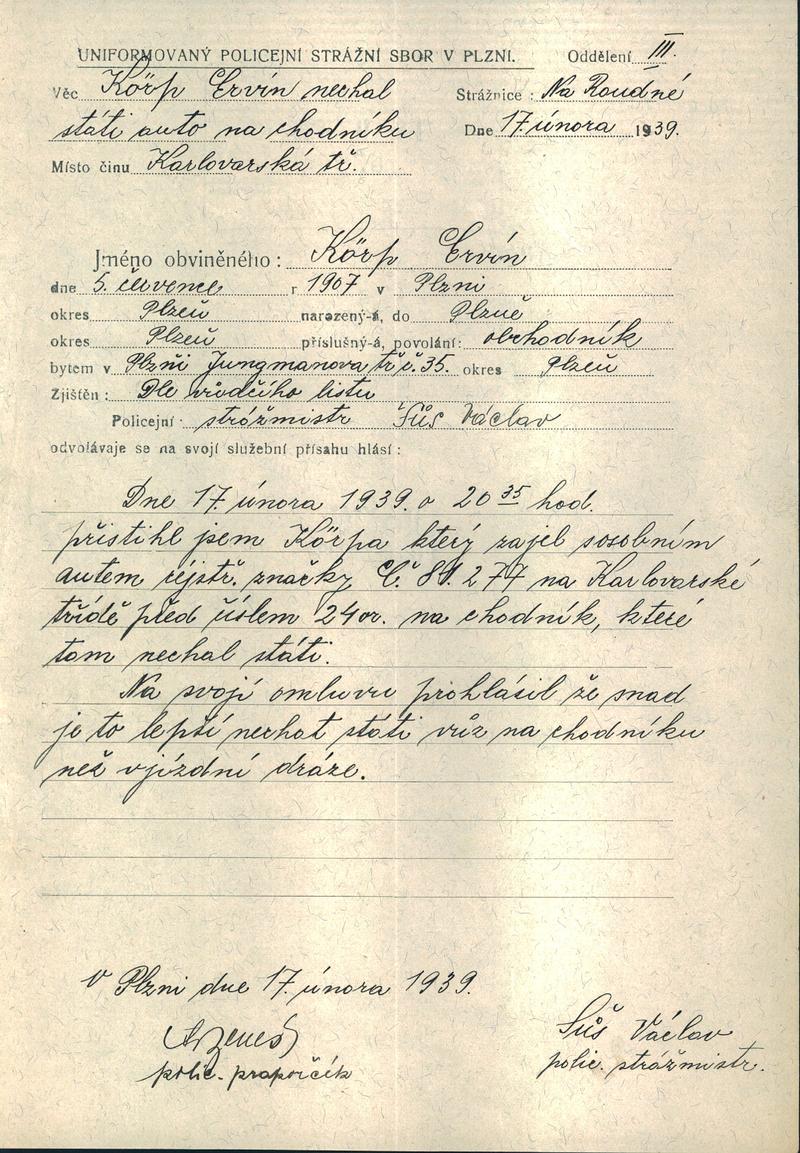 UNIFORMOVANÝ POLICEJNÍ STRÁŽNÍ SBOR V PLZNI. Oddělení III.
Věc Körp Ervín nechal Strážnice: Na Roudné
státi auto na chodníku Dne 17. února 1939.
Místo činu Karlovarská tř.
Jméno obviněného: Körp Ervín
dne 5. července r 1907 v Plzni
okres Plzeň narozený-á, do Plzně
okres Plzeň příslušný-á, povolání: obchodník
bytem v Plzňi Jungmanova tř č. 35. okres Plzeň
Zjištěn: Dle vůdčího listu
Policejní strážmistr Šůs Václav
odvolávaje se na svojí služební přísahu hlásí:
Dne 17. února 1939. o 20 35 hod.
přistihl jsem Körpa který zajel sosobním
autem rejstř. značky Č. 81.277 na Karlovarské
třídě před číslem 24 or. na chodník, které
tam nechal státi.
Na svojí omluvu prohlásil že snad
je to lepší nechat státi vůz na chodníku
než vjízdní dráze.
V Plzni dne 17. února 1939.
Šůs Václav
polic. praporčík polic. strážmistr.